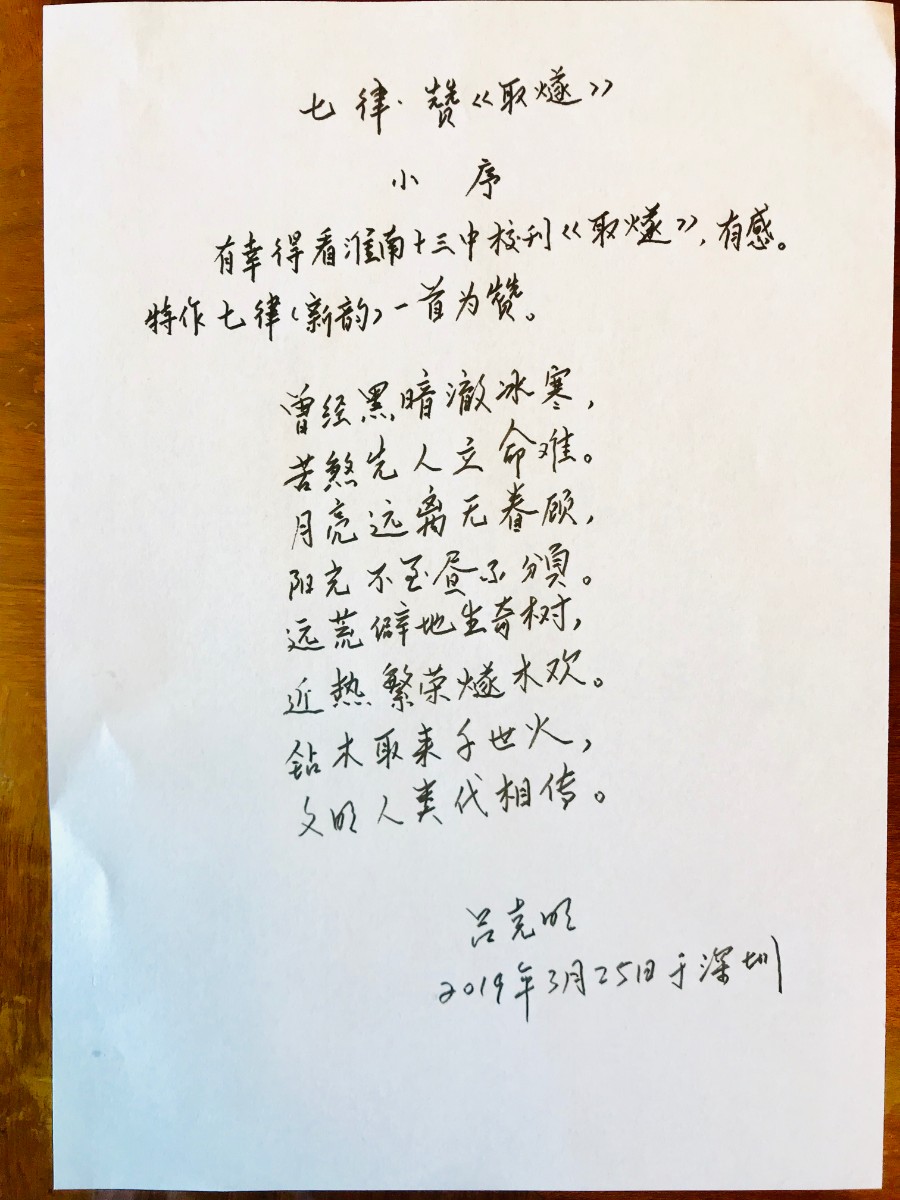 七律·赞《取燧》
小序
有幸得看淮南十三中校刊《取燧》,有感。
特作七律(新韵)一首为赞。
曾经黑暗澈冰寒,
苦煞先人立命难。
月亮远离无眷顾,
阳光不至昼不颁。
远荒僻地生奇树,
近热繁荣燧木欢。
钻木取来千世火,
文明人类代相传。
吕克明
2019年3月25日于深圳